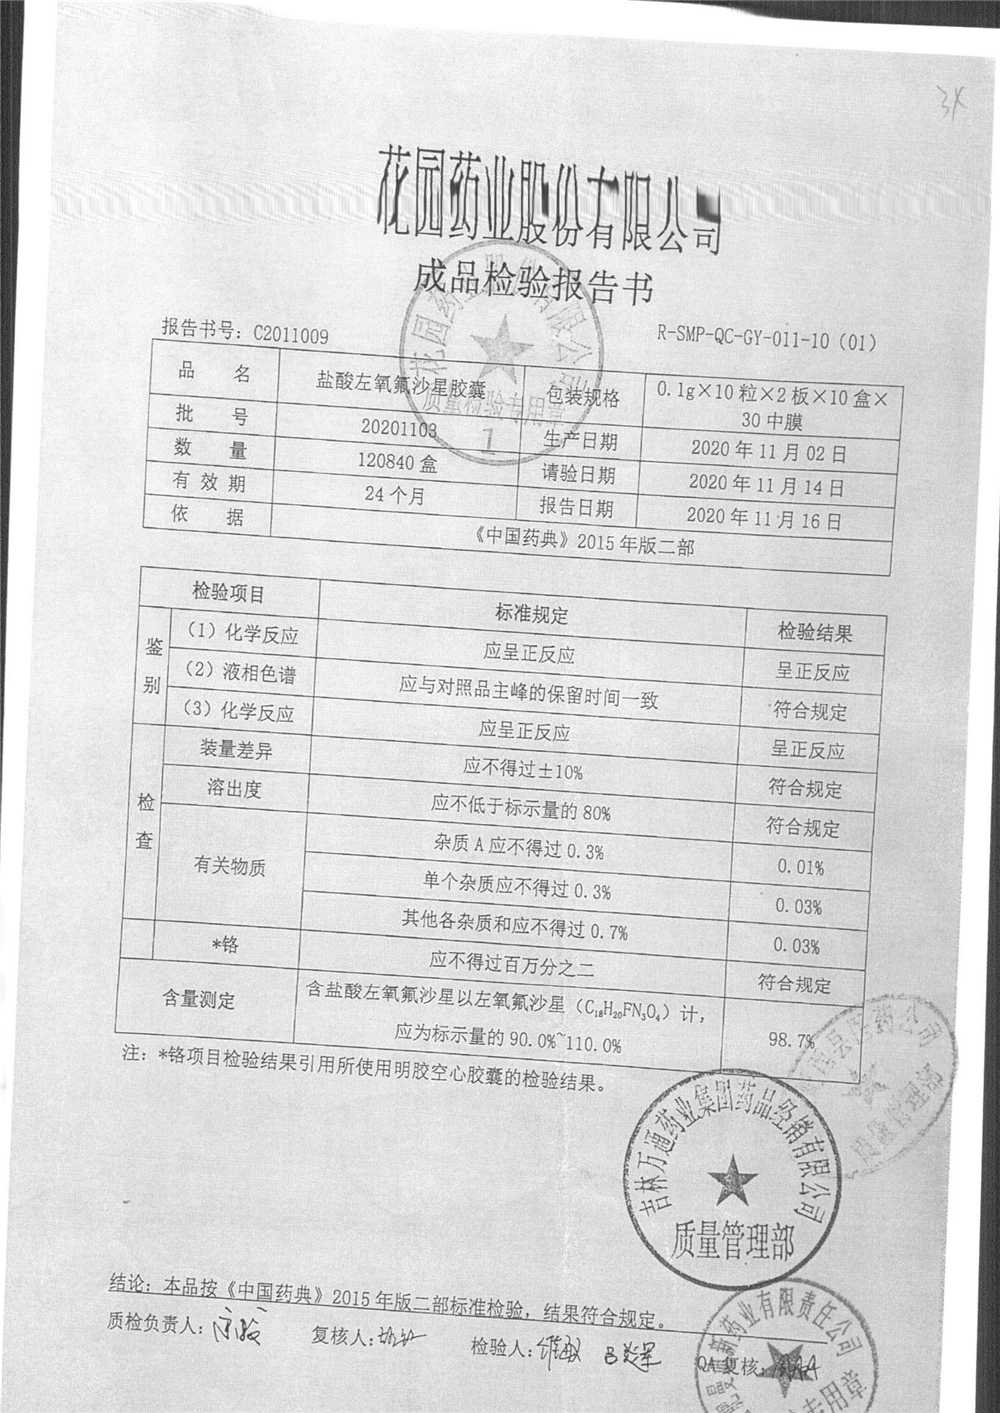 花园药业股份有限公司
成品检验报告书
报告书号：C2011009
R-SMP-QC-GY-011-10（01）
品 名 盐酸左氧氟沙星胶囊 包装规格 0.1g×10粒×2板×10盒×
30中膜
批 号 20201103 生产日期 2020年11月02日
数 量 120840盒 请验日期 2020年11月14日
有效期 24个月 报告日期 2020年11月16日
依 据 《中国药典》2015年版二部
检验项目 标准规定 检验结果
鉴别
（1）化学反应 应呈正反应 呈正反应
（2）液相色谱 应与对照品主峰的保留时间一致 符合规定
（3）化学反应 应呈正反应 呈正反应
检查
装量差异 应不得过±10% 符合规定
溶出度 应不低于标示量的80% 符合规定
有关物质 杂质A应不得过0.3% 0.01%
单个杂质应不得过0.3% 0.03%
其他各杂质和应不得过0.7% 0.03%
*铬 应不得过百万分之二 符合规定
含量测定 含盐酸左氧氟沙星以左氧氟沙星（C₁₈H₂₀FN₃O₄）计，
应为标示量的90.0%~110.0% 98.7%
注：*铬项目检验结果引用所使用明胶空心胶囊的检验结果。
结论：本品按《中国药典》2015年版二部标准检验，结果符合规定。
质检负责人：
复核人：
检验人：
QA复核：
花园药业股份有限公司
质量检验专用章
1
吉林万通药业集团药品经销有限公司
质量管理部
药业有限责任公司
专用章